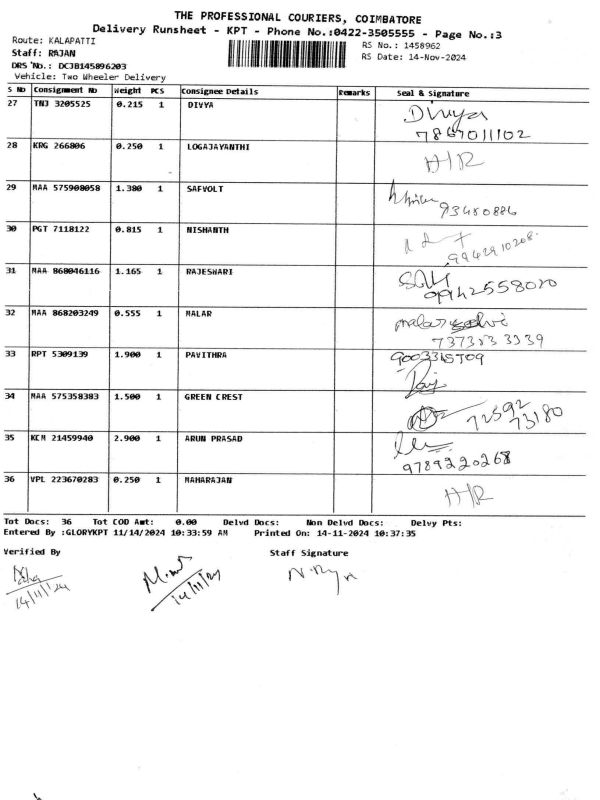 THE PROFESSIONAL COURIERS, COIMBATORE
Delivery Runsheet - KPT - Phone No.:0422-3505555 - Page No.:3
Route: KALAPATTI RS No.: 1458962
Staff: RAJAN RS Date: 14-Nov-2024
DRS No.: DCJB145896203
Vehicle: Two Wheeler Delivery
S No Consignment No Weight PCS Consignee Details Remarks Seal & Signature
27 TNJ 3205525 0.215 1 DIVYA Divya
7867011102
28 KRG 266806 0.250 1 LOGAJAYANTHI H/R
29 MAA 575908058 1.380 1 SAFVOLT
93480886
30 PGT 7118122 0.815 1 NISHANTH
9942910208.
31 MAA 868046116 1.165 1 RAJESWARI
32 MAA 868203249 0.555 1 MALAR malar selvi
737383 3339
33 RPT 5309139 1.900 1 PAVITHRA
34 MAA 575358383 1.500 1 GREEN CREST 72592
73180
35 KCM 21459940 2.900 1 ARUN PRASAD
9789220268
36 VPL 223670283 0.250 1 MAHARAJAN H/R
Tot Docs: 36 Tot COD Amt: 0.00 Delvd Docs: Non Delvd Docs: Delvy Pts:
Entered By :GLORYKPT 11/14/2024 10:33:59 AM Printed On: 14-11-2024 10:37:35
Verified By Staff Signature
14/11/24 14/11/24